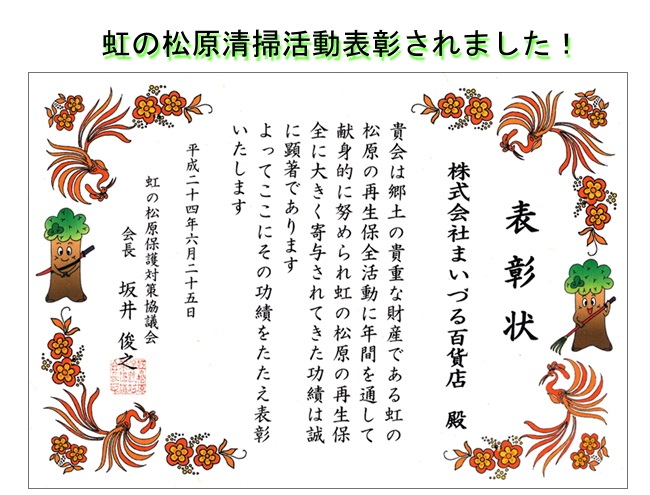 虹の松原清掃活動表彰されました！
表彰状
株式会社まいづる百貨店 殿
貴会は郷土の貴重な財産である虹の
松原の再生保全活動に年間を通して
献身的に努められ虹の松原の再生保
全に大きく寄与されてきた功績は誠
に顕著であります
よってここにその功績をたたえ表彰
いたします
平成二十四年六月二十五日
虹の松原保護対策協議会
会長 坂井 俊之